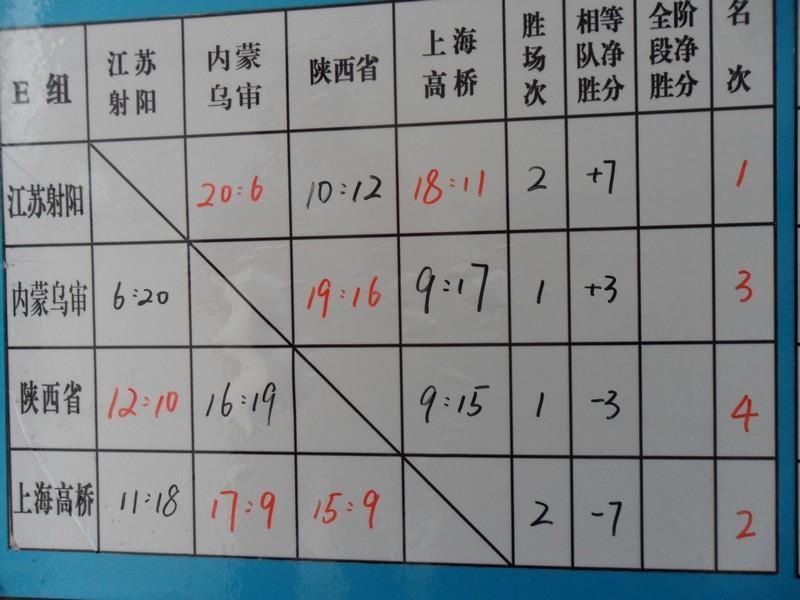 E组 江苏射阳 内蒙乌审 陕西省 上海高桥 胜场次 相等队净胜分 全阶段净胜分 名次
江苏射阳 20:6 10:12 18:11 2 +7 1
内蒙乌审 6:20 19:16 9:17 1 +3 3
陕西省 12:10 16:19 9:15 1 -3 4
上海高桥 11:18 17:9 15:9 2 -7 2